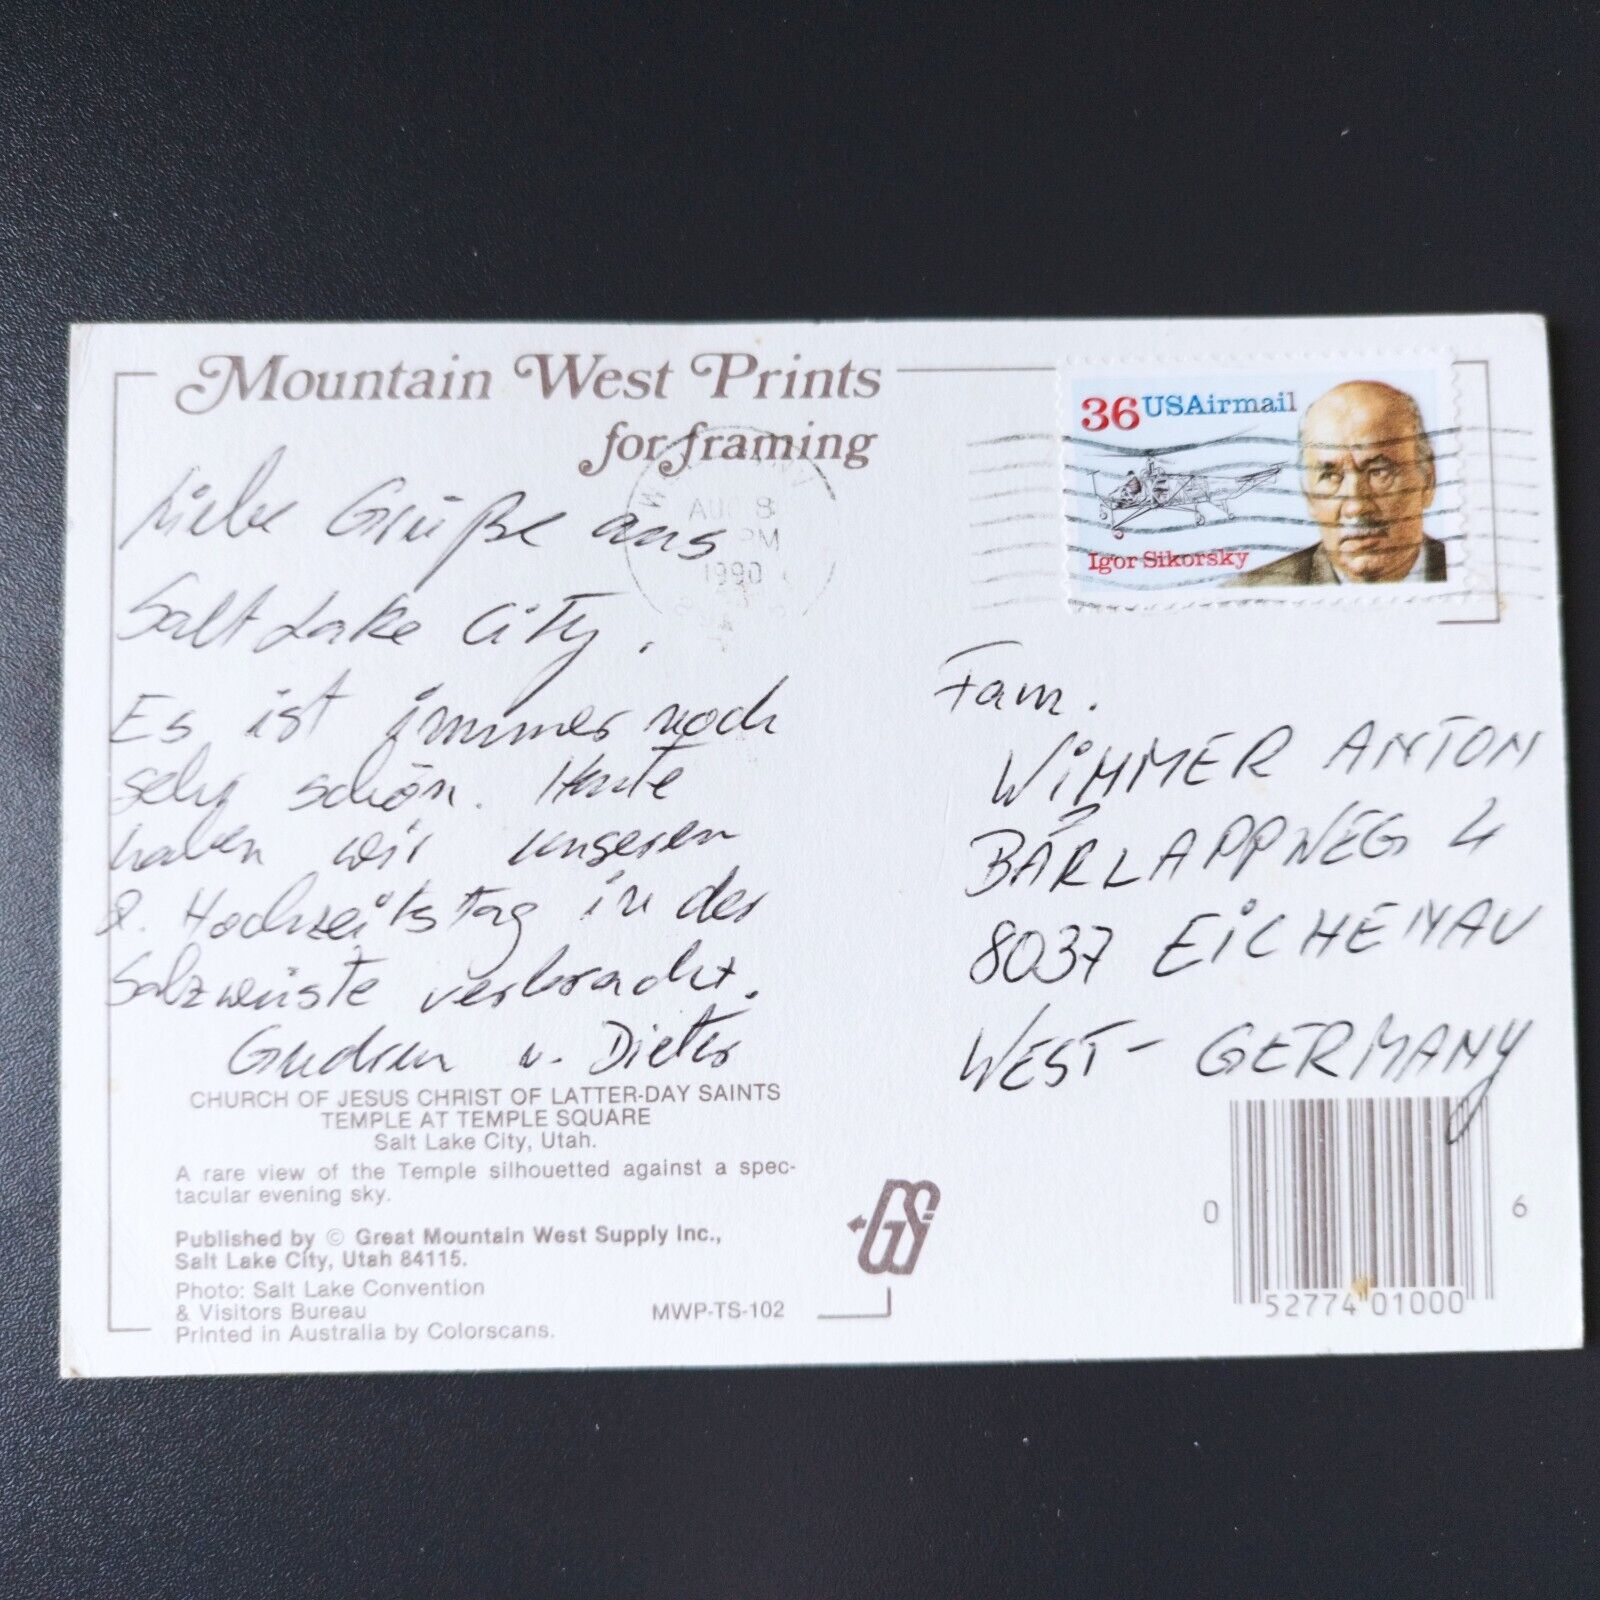 Mountain West Prints
for framing
Liebe Grüße aus
Salt Lake City.
Es ist immer noch
sehr schön. Heute
haben wir unseren
8. Hochzeitstag in der
Salzwüste verbracht.
Gudrun u. Dieter
AUG 8
PM
1990
36 USAirmail
Igor Sikorsky
Fam.
WIMMER ANTON
BÄRLAPPWEG 4
8037 EICHENAU
WEST-GERMANY
CHURCH OF JESUS CHRIST OF LATTER-DAY SAINTS
TEMPLE AT TEMPLE SQUARE
Salt Lake City, Utah.
A rare view of the Temple silhouetted against a spec-
tacular evening sky.
Published by © Great Mountain West Supply Inc.,
Salt Lake City, Utah 84115.
Photo: Salt Lake Convention
& Visitors Bureau
Printed in Australia by Colorscans.
MWP-TS-102
GS
0 52774 01000 6